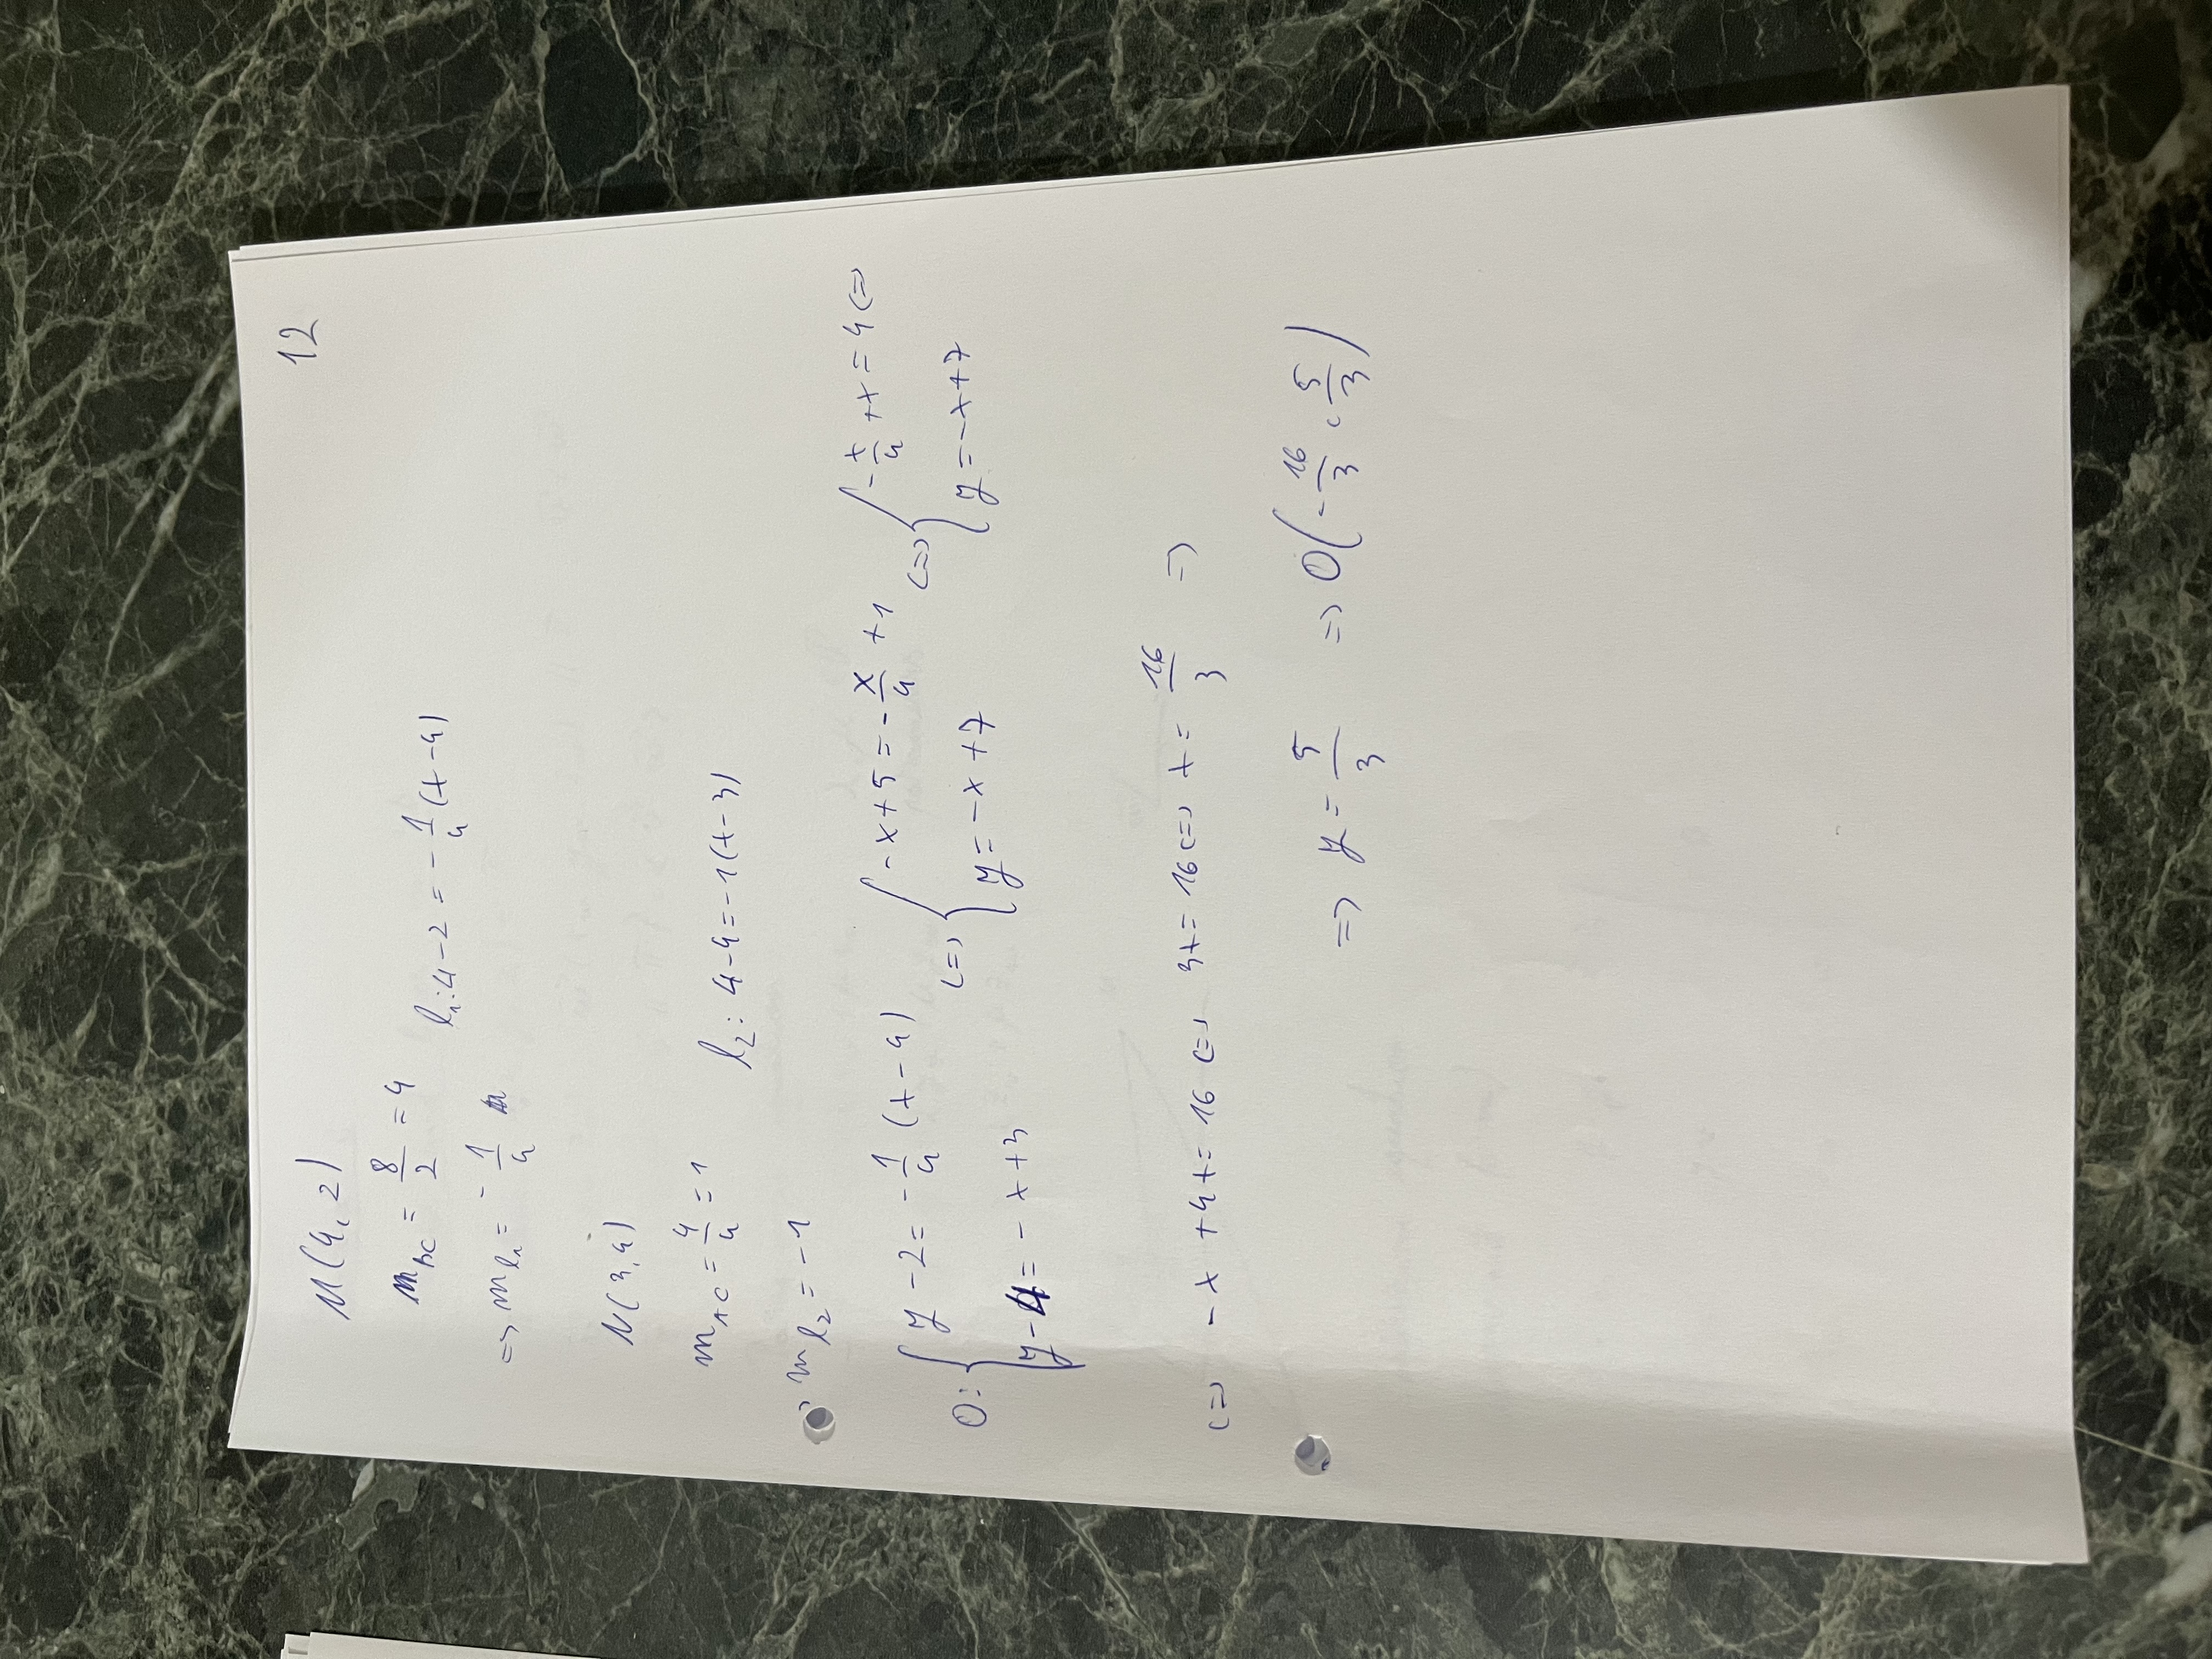 12
M(4, 2)
m_BC = 8/2 = 4
l₁: y - 2 = - 1/4 (x - 4)
=> m_l₁ = - 1/4
N(3, 4)
m_AC = 4/4 = 1
l₂: y - 4 = - 1 (x - 3)
=> m_l₂ = - 1
O: { y - 2 = - 1/4 (x - 4) <=> { - x + 5 = - x/4 + 1 <=> { - x/4 + x = 4 <=>
y - 4 = - x + 3 y = - x + 7 y = - x + 7
<=> - x + 4x = 16 <=> 3x = 16 <=> x = 16/3 =>
=> y = 5/3 => O(- 16/3, 5/3)